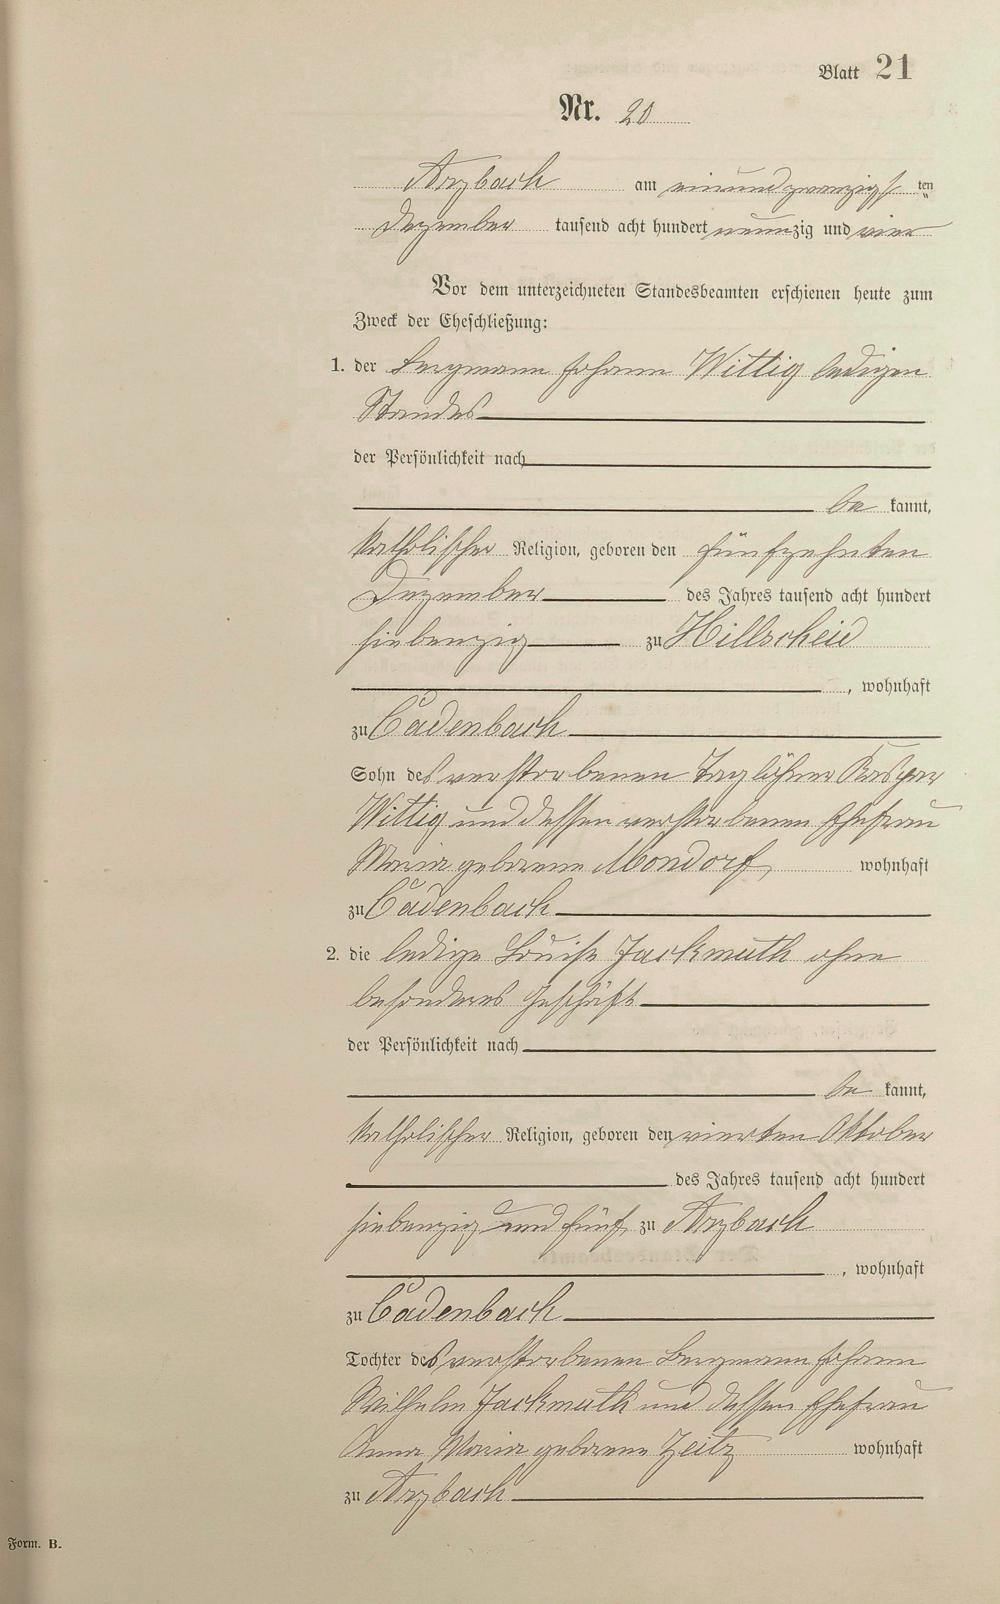 Blatt 21
Nr. 20
Arzbach am einundzwanzigsten
Dezember tausend acht hundert neunzig und vier
Vor dem unterzeichneten Standesbeamten erschienen heute zum
Zweck der Eheschließung:
1. der Bergmann Johann Wittig ledigen
Standes
der Persönlichkeit nach
be kannt,
katholischer Religion, geboren den fünfzehnten
Dezember des Jahres tausend acht hundert
siebenzig zu Hillscheid
, wohnhaft
zu Cadenbach
Sohn des verstorbenen Taglöhner Kaspar
Wittig und dessen verstorbenen Ehefrau
Maria geborene Mondorf, wohnhaft
zu Cadenbach
2. die ledige Louise Jackmuth ohne
besonderes Geschäft
der Persönlichkeit nach
be kannt,
katholischer Religion, geboren den vierten Oktober
des Jahres tausend acht hundert
siebenzig und fünf zu Arzbach
, wohnhaft
zu Cadenbach
Tochter des verstorbenen Bergmann Johann
Wilhelm Jackmuth und dessen Ehefrau
Anna Maria geborene Zeitz wohnhaft
zu Arzbach
Form. B.